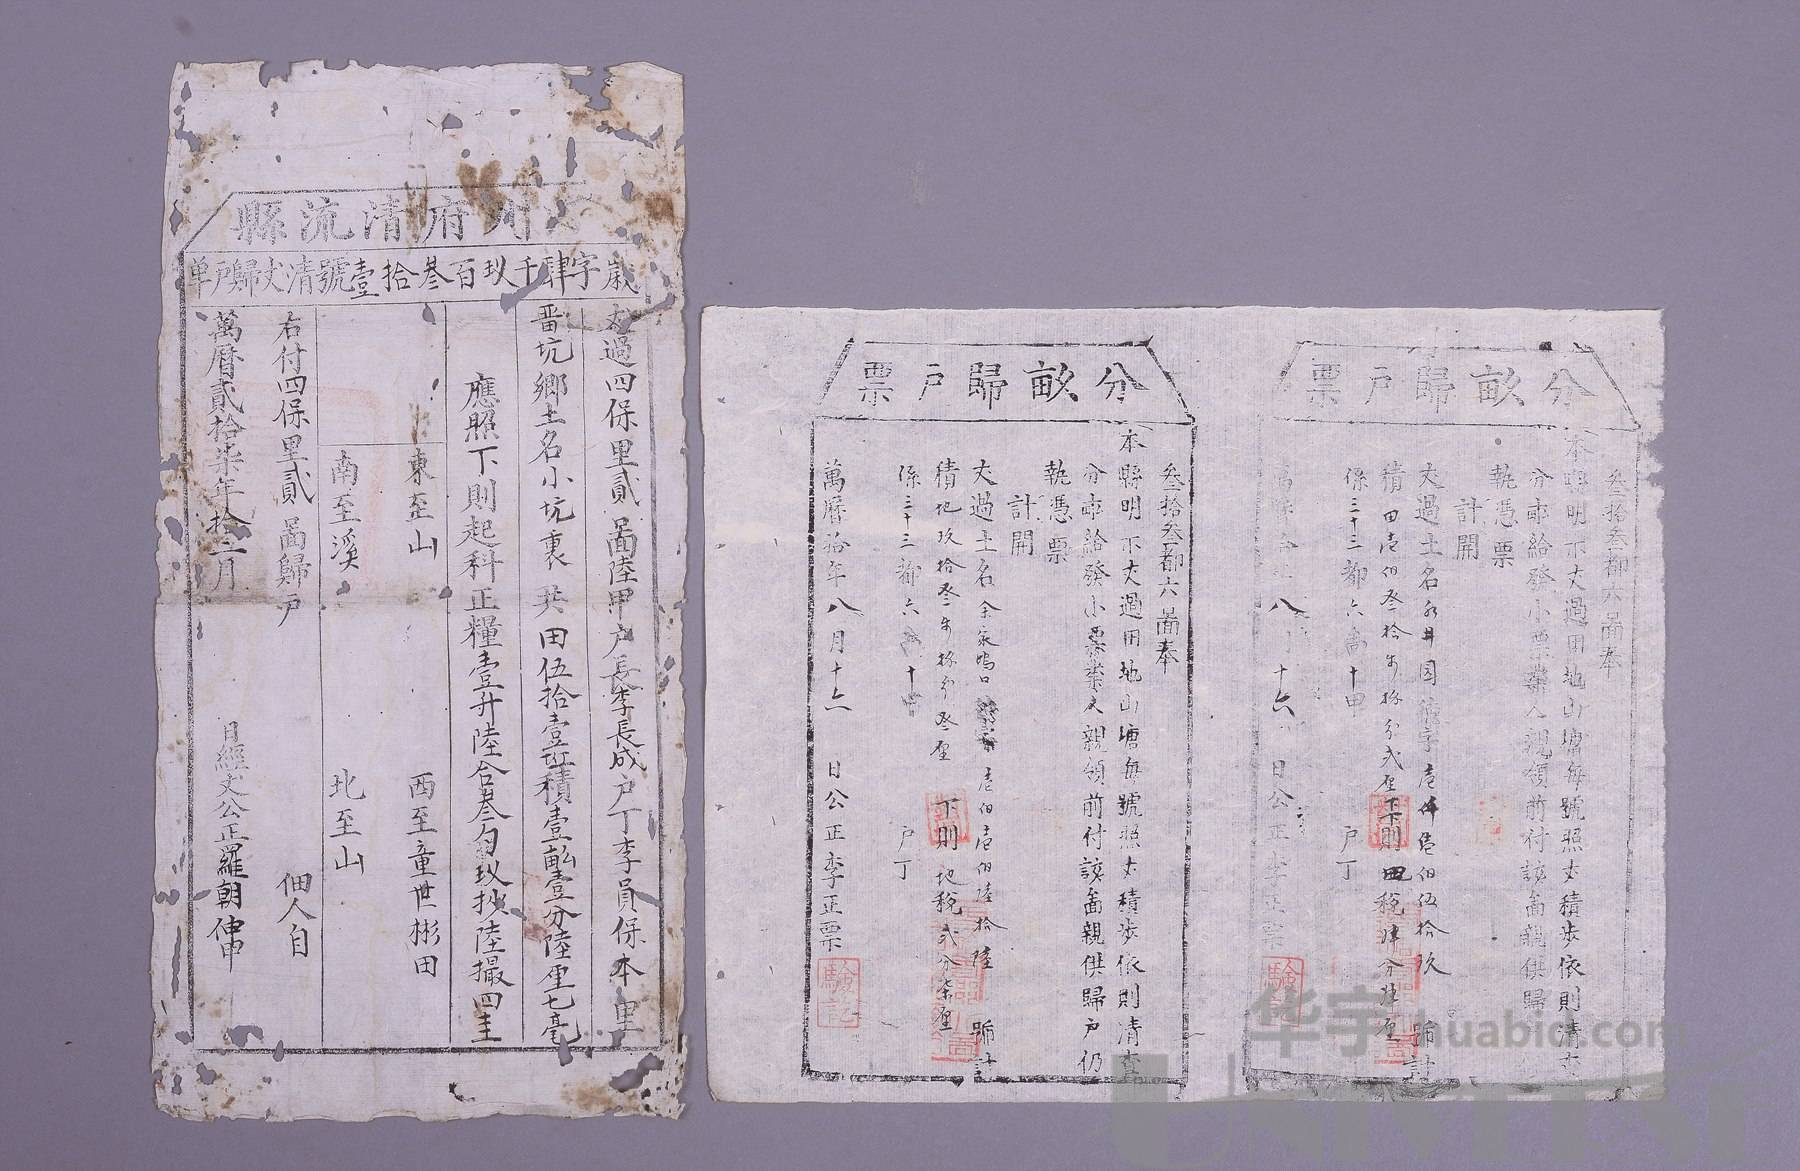 州府清流縣
歲字肆千玖百叁拾壹號清丈歸戶單
丈過四保里貳啚陸甲戶長李長成戶丁李員保本里
畨坑鄉土名小坑裏共田伍拾壹坵積壹畝壹分陸厘七毫
應照下則起科正糧壹升陸合叁勺玖抄陸撮四圭
東至山
西至童世彬田
南至溪
北至山
右付四保里貳啚歸戶
佃人自
萬曆貳拾柒年拾二月
日經丈公正羅朝伸
分畝歸戶票
叁拾叁都六啚奉
本縣明示丈過田地山塘每號照丈積步依則清查
分畝給發小票業人親領前付該啚親供歸戶仍
執憑票
計開
丈過土名余家塢口壱伯壱伯陸拾陸號計
積地玖拾叁步捌分叁厘下則地稅弍分柒厘
係三十三都六啚十甲戶丁
萬曆拾年八月十六日公正李正票
驗訖
分畝歸戶票
叁拾叁都六啚奉
本縣明示丈過田地山塘每號照丈積步依則清查
分畝給發小票業人親領前付該啚親供歸
執憑票
計開
丈過土名水井園字壱仟壱伯伍拾玖號計
積田壱伯叁拾步捌分弍厘下則田稅肆分肆厘
係三十三都六啚十甲戶丁
萬曆拾年八月十六日公正李正票
驗訖
华宇huabid.com